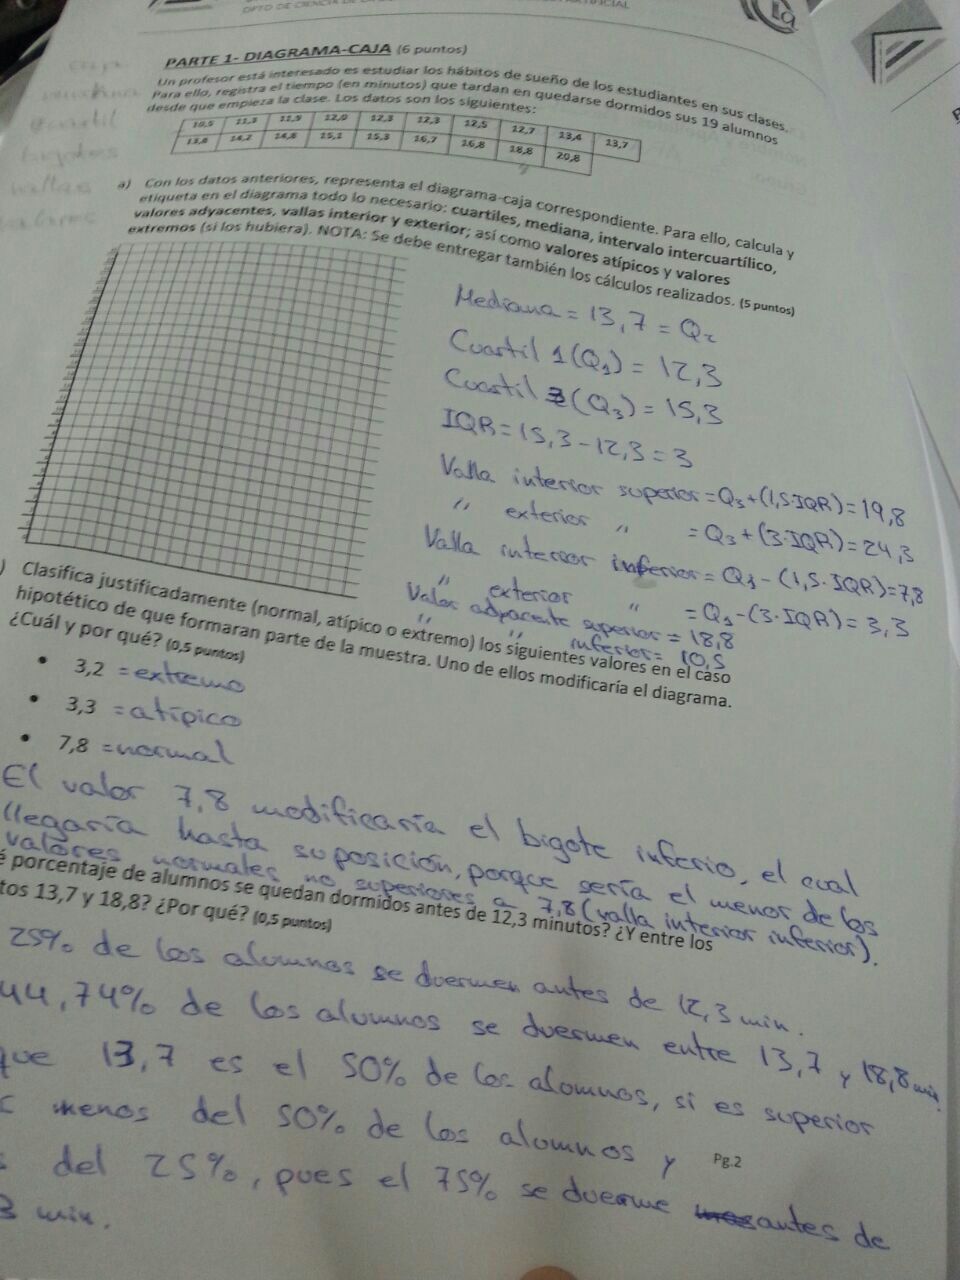 DPTO DE CIENCIA DE LA
PARTE 1- DIAGRAMA-CAJA (6 puntos)
Un profesor está interesado es estudiar los hábitos de sueño de los estudiantes en sus clases.
Para ello, registra el tiempo (en minutos) que tardan en quedarse dormidos sus 19 alumnos
desde que empieza la clase. Los datos son los siguientes:
10,5 11,3 11,9 12,0 12,3 12,3 12,5 12,7 13,4 13,7
13,8 14,2 14,8 15,1 15,3 16,7 16,8 18,8 20,8
a) Con los datos anteriores, representa el diagrama-caja correspondiente. Para ello, calcula y
etiqueta en el diagrama todo lo necesario: cuartiles, mediana, intervalo intercuartílico,
valores adyacentes, vallas interior y exterior; así como valores atípicos y valores
extremos (si los hubiera). NOTA: Se debe entregar también los cálculos realizados. (5 puntos)
Mediana = 13,7 = Q2
Cuartil 1 (Q1) = 12,3
Cuartil 3 (Q3) = 15,3
IQR = 15,3 - 12,3 = 3
Valla interior superior = Q3 + (1,5·IQR) = 19,8
" exterior " = Q3 + (3·IQR) = 24,3
Valla interior inferior = Q1 - (1,5·IQR) = 7,8
" exterior " = Q1 - (3·IQR) = 3,3
Valor adyacente superior = 18,8
" " inferior = 10,5
) Clasifica justificadamente (normal, atípico o extremo) los siguientes valores en el caso
hipotético de que formaran parte de la muestra. Uno de ellos modificaría el diagrama.
¿Cuál y por qué? (0,5 puntos)
• 3,2 = extremo
• 3,3 = atípico
• 7,8 = normal
El valor 7,8 modificaría el bigote inferio, el cual
llegaría hasta su posición, porque sería el menor de los
valores normales no superiores a 7,8 (valla interior inferior).
é porcentaje de alumnos se quedan dormidos antes de 12,3 minutos? ¿Y entre los
tos 13,7 y 18,8? ¿Por qué? (0,5 puntos)
25% de los alumnos se duermen antes de 12,3 min.
44,74% de los alumnos se duermen entre 13,7 y 18,8 min.
que 13,7 es el 50% de los alumnos, si es superior
menos del 50% de los alumnos y
del 25%, pues el 75% se duerme antes de
3 min.
Pg.2